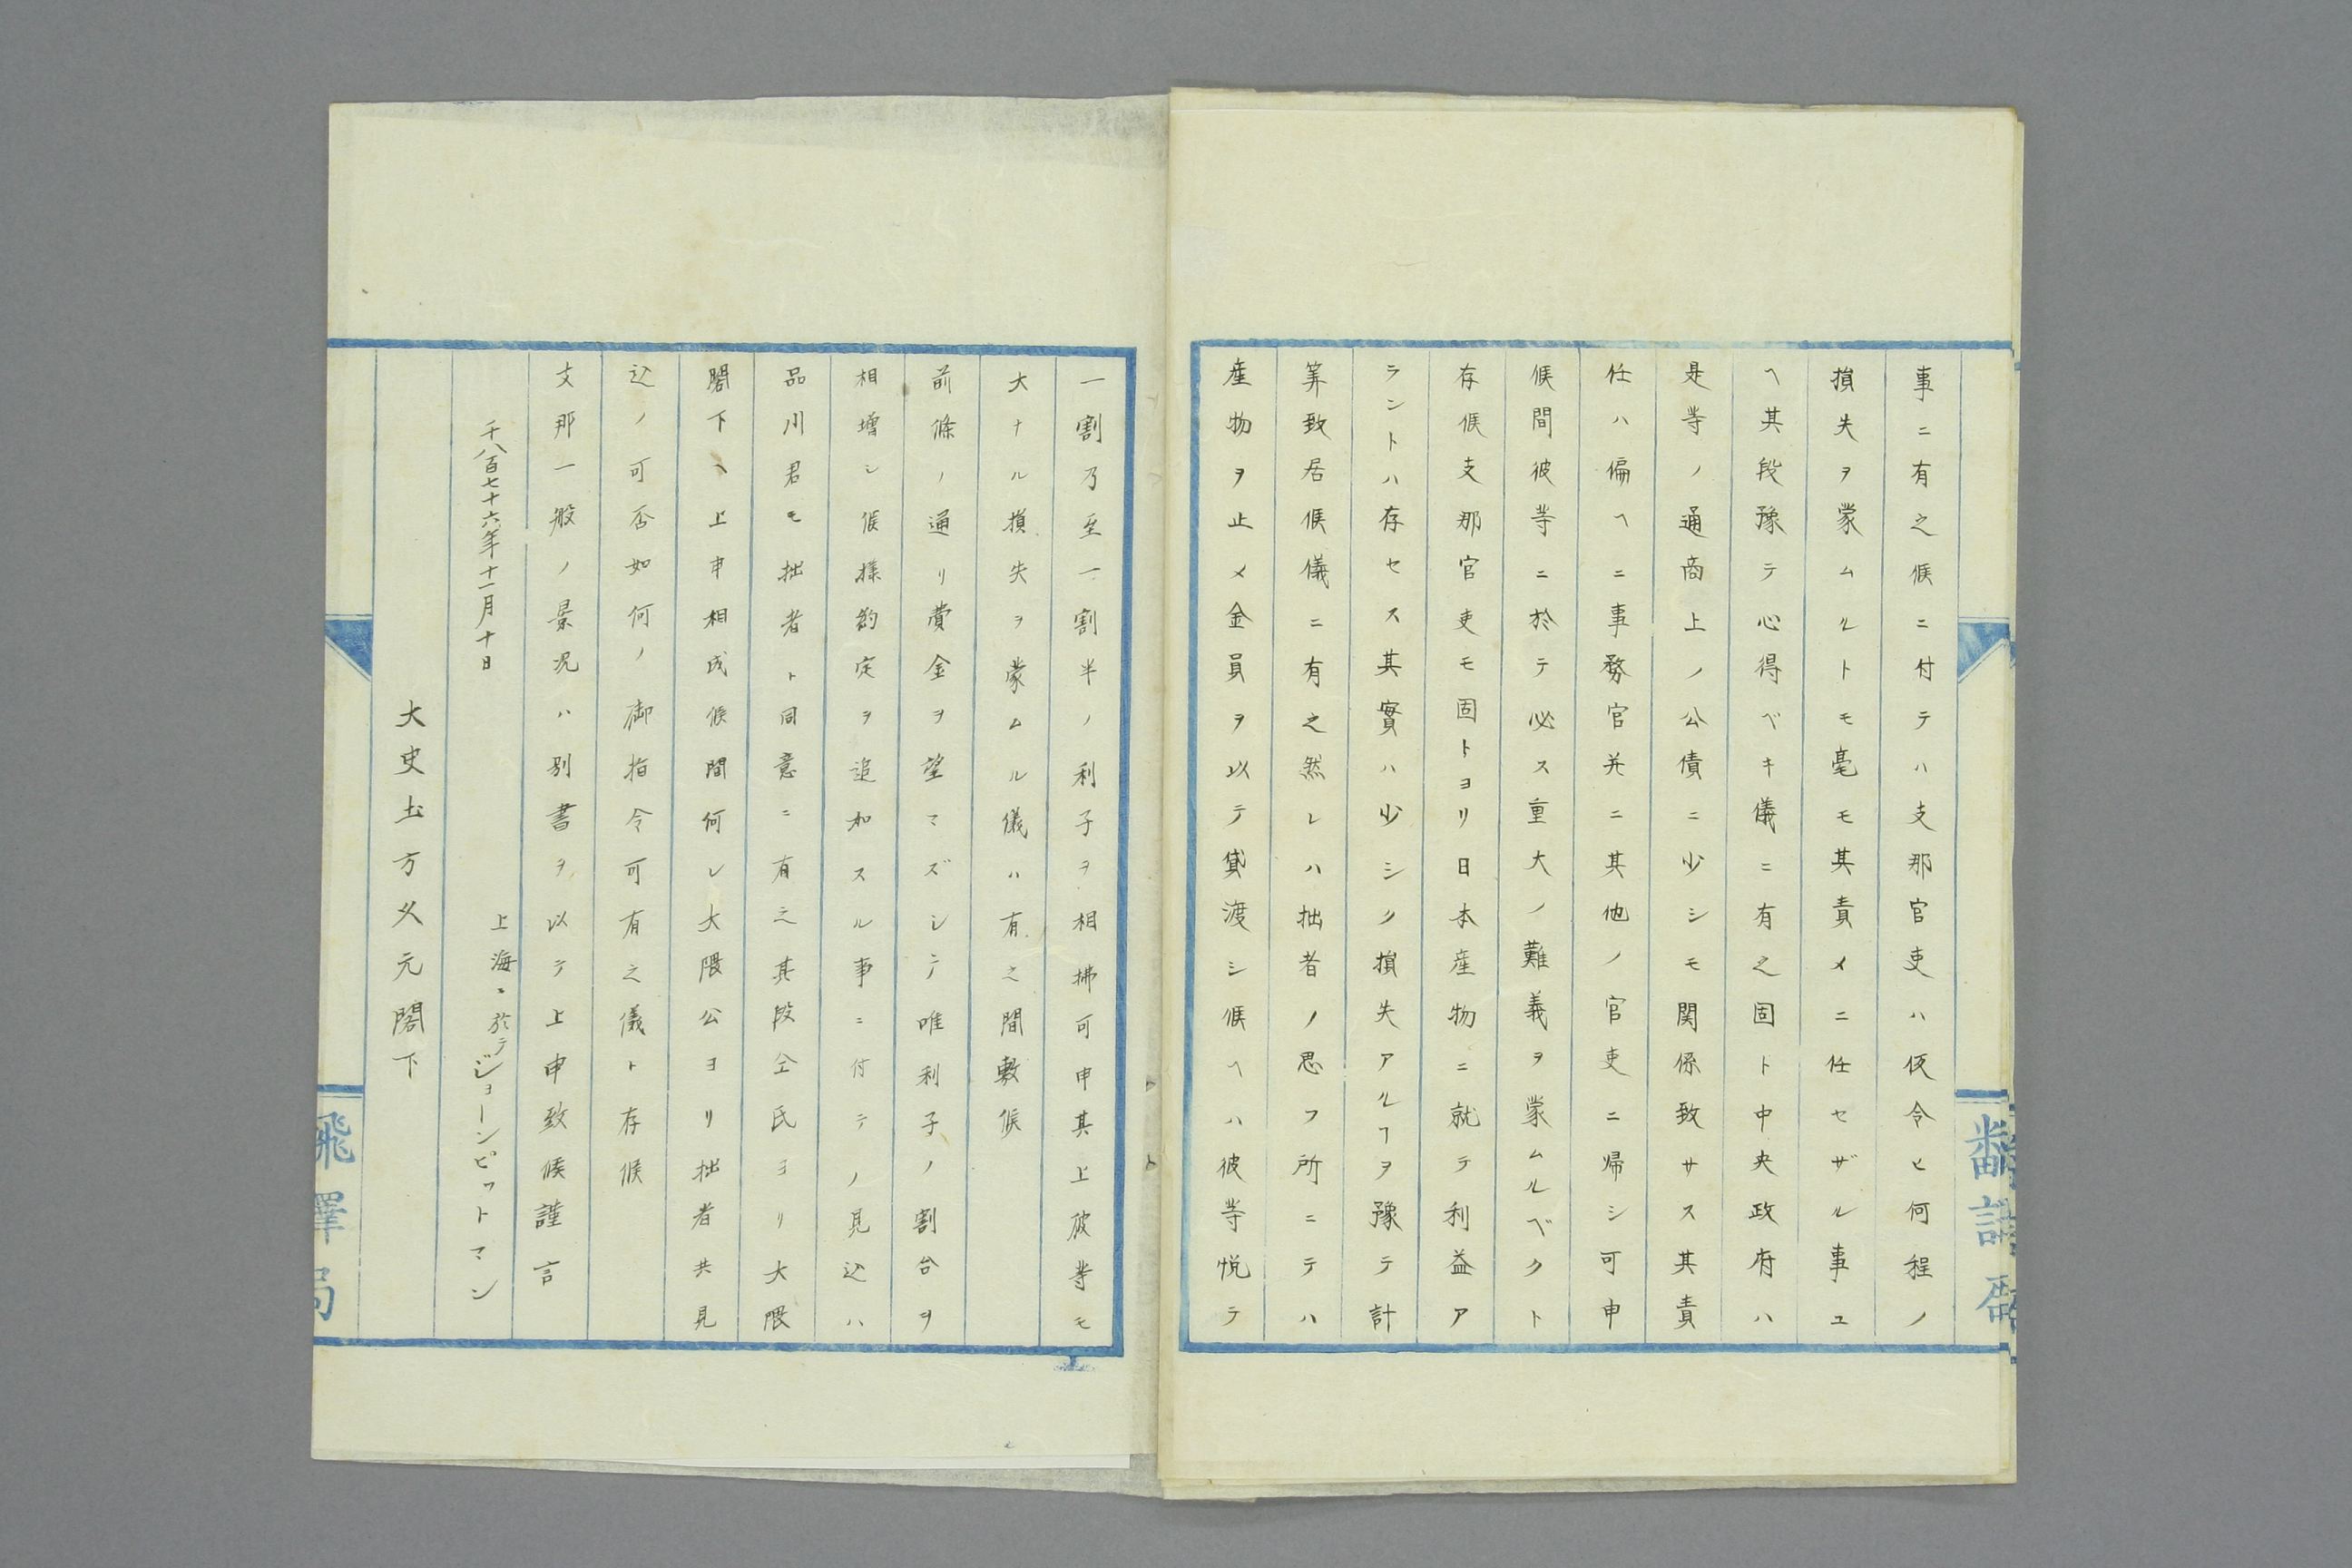 事ニ有之候ニ付テハ支那官吏ハ仮令ヒ何程ノ
損失ヲ蒙ムルトモ毫モ其責メニ任セザル事ユ
ヘ其段豫テ心得ベキ儀ニ有之固ト中央政府ハ
是等ノ通商上ノ公債ニ少シモ関係致サス其責
任ハ偏ヘニ事務官并ニ其他ノ官吏ニ帰シ可申
候間彼等ニ於テ必ス重大ノ難義ヲ蒙ムルベクト
存候支那官吏モ固トヨリ日本産物ニ就テ利益ア
ラントハ存セス其實ハ少シク損失アルヿヲ豫テ計
筭致居候儀ニ有之然レハ拙者ノ思フ所ニテハ
産物ヲ止メ金員ヲ以テ貸渡シ候ヘハ彼等悦テ
一割乃至一割半ノ利子ヲ相拂可申其上彼等モ
大ナル損失ヲ蒙ムル儀ハ有之間敷候
前條ノ通リ費金ヲ望マズシテ唯利子ノ割合ヲ
相増シ候様約定ヲ追加スル事ニ付テノ見込ハ
品川君モ拙者ト同意ニ有之其段仝氏ヨリ大隈
閣下ヘ上申相成候間何レ大隈公ヨリ拙者共見
込ノ可否如何ノ御指令可有之儀ト存候
支那一般ノ景況ハ別書ヲ以テ上申致候謹言
千八百七十六年十一月十日
上海ニ於テジョーンピットマン
大史土方久元閣下
飜譯局
飜譯局